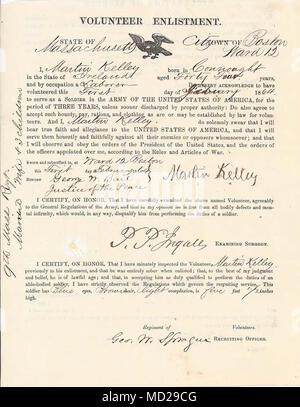 VOLUNTEER ENLISTMENT.
STATE OF
Massachusetts
City
TOWN OF
Boston
Ward 12
I, Martin Kelley born in Connaught
in the State of Ireland aged Forty Four years,
and by occupation a Laborer DO HEREBY ACKNOWLEDGE to have
volunteered this First day of February 1864
to serve as a SOLDIER in the ARMY OF THE UNITED STATES OF AMERICA, for the
period of THREE YEARS, unless sooner discharged by proper authority: Do also agree to
accept such bounty, pay, rations, and clothing, as are or may be established by law for volun-
teers. And I, Martin Kelley do solemnly swear that I will
bear true faith and allegiance to the UNITED STATES OF AMERICA, and that I will
serve them honestly and faithfully against all their enemies or opposers whomsoever; and that
I will observe and obey the orders of the President of the United States, and the orders of
the officers appointed over me, according to the Rules and Articles of War.
Sworn and subscribed to, at Ward 12 Boston
this First day of February 1864
BEFORE George W. Bail
Justice of the Peace
Martin Kelley
I CERTIFY, ON HONOR, That I have carefully examined the above named Volunteer, agreeably
to the General Regulations of the Army, and that in my opinion he is free from all bodily defects and men-
tal infirmity, which would, in any way, disqualify him from performing the duties of a soldier.
EXAMINING SURGEON.
I CERTIFY, ON HONOR, That I have minutely inspected the Volunteer, Martin Kelley
previously to his enlistment, and that he was entirely sober when enlisted; that, to the best of my judgment
and belief, he is of lawful age; and that, in accepting him as duly qualified to perform the duties of an
able-bodied soldier, I have strictly observed the Regulations which govern the recruiting service. This
soldier has Blue eyes, Brown hair, Light complexion, is five feet 7 inches
high.
Regiment of Volunteers.
Geo. W. Sprague RECRUITING OFFICER.
Married Wife & 5 children
alamy
Image ID: MD29CG
www.alamy.com